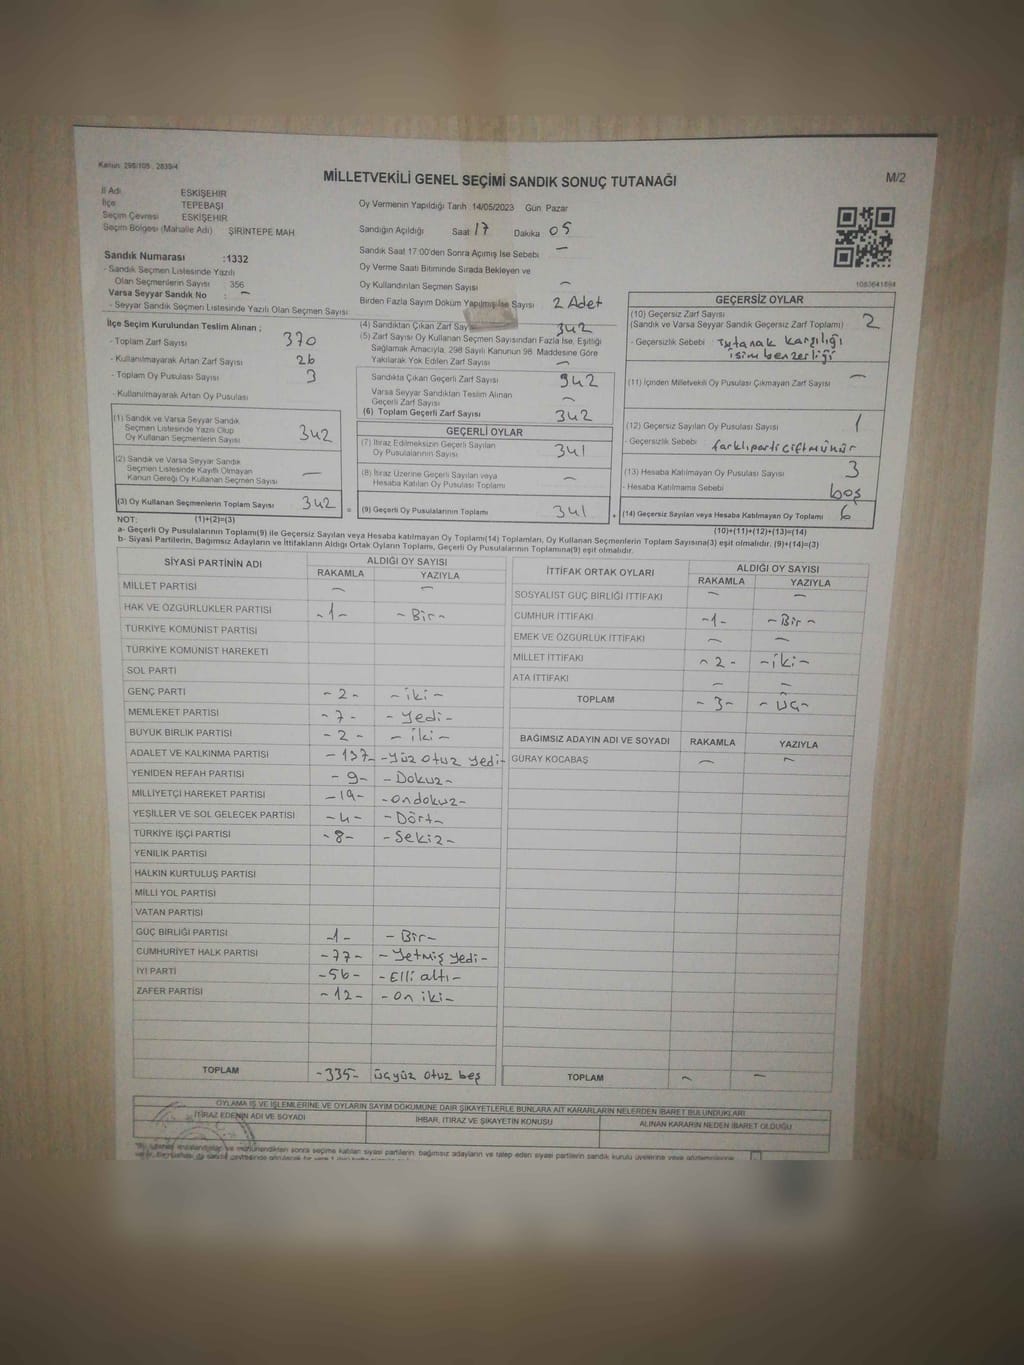 Kanun: 298/105 , 2839/4
MİLLETVEKİLİ GENEL SEÇİMİ SANDIK SONUÇ TUTANAĞI
M/2
İl Adı ESKİŞEHİR
İlçe TEPEBAŞI
Seçim Çevresi ESKİŞEHİR
Seçim Bölgesi (Mahalle Adı) ŞİRİNTEPE MAH
Sandık Numarası :1332
- Sandık Seçmen Listesinde Yazılı
Olan Seçmenlerin Sayısı : 356
Varsa Seyyar Sandık No : -
- Seyyar Sandık Seçmen Listesinde Yazılı Olan Seçmen Sayısı
Oy Vermenin Yapıldığı Tarih :14/05/2023 Gün: Pazar
Sandığın Açıldığı Saat 17 Dakika 05
Sandık Saat 17:00'den Sonra Açımış İse Sebebi -
Oy Verme Saati Bitiminde Sırada Bekleyen ve
Oy Kullandırılan Seçmen Sayısı -
Birden Fazla Sayım Döküm Yapılmış İse Sayısı 2 Adet
1083641894
İlçe Seçim Kurulundan Teslim Alınan ;
- Toplam Zarf Sayısı 370
- Kullanılmayarak Artan Zarf Sayısı 26
- Toplam Oy Pusulası Sayısı 3
- Kullanılmayarak Artan Oy Pusulası
(1) Sandık ve Varsa Seyyar Sandık
Seçmen Listesinde Yazılı Olup
Oy Kullanan Seçmenlerin Sayısı 342
(2) Sandık ve Varsa Seyyar Sandık
Seçmen Listesinde Kayıtlı Olmayan
Kanun Gereği Oy Kullanan Seçmen Sayısı -
(3) Oy Kullanan Seçmenlerin Toplam Sayısı 342
(4) Sandıktan Çıkan Zarf Say 342
(5) Zarf Sayısı Oy Kullanan Seçmen Sayısından Fazla İse, Eşitliği
Sağlamak Amacıyla, 298 Sayılı Kanunun 98. Maddesine Göre
Yakılarak Yok Edilen Zarf Sayısı -
Sandıkta Çıkan Geçerli Zarf Sayısı 342
Varsa Seyyar Sandıktan Teslim Alınan
Geçerli Zarf Sayısı -
(6) Toplam Geçerli Zarf Sayısı 342
GEÇERLİ OYLAR
(7) İtiraz Edilmeksizin Geçerli Sayılan
Oy Pusulalarının Sayısı 341
(8) İtiraz Üzerine Geçerli Sayılan veya
Hesaba Katılan Oy Pusulası Toplamı -
= (9) Geçerli Oy Pusulalarının Toplamı 341 +
GEÇERSİZ OYLAR
(10) Geçersiz Zarf Sayısı
(Sandık ve Varsa Seyyar Sandık Geçersiz Zarf Toplamı) 2
- Geçersizlik Sebebi Tutanak karşılığı
isim benzerliği
(11) İçinden Milletvekili Oy Pusulası Çıkmayan Zarf Sayısı -
(12) Geçersiz Sayılan Oy Pusulası Sayısı 1
- Geçersizlik Sebebi farklı parti çift mühür
(13) Hesaba Katılmayan Oy Pusulası Sayısı 3
- Hesaba Katılmama Sebebi boş
(14) Geçersiz Sayılan veya Hesaba Katılmayan Oy Toplamı 6
NOT: (1)+(2)=(3) (10)+(11)+(12)+(13)=(14)
a- Geçerli Oy Pusulalarının Toplamı(9) ile Geçersiz Sayılan veya Hesaba katılmayan Oy Toplamı(14) Toplamları, Oy Kullanan Seçmenlerin Toplam Sayısına(3) eşit olmalıdır. (9)+(14)=(3)
b- Siyasi Partilerin, Bağımsız Adayların ve İttifakların Aldığı Ortak Oyların Toplamı, Geçerli Oy Pusulalarının Toplamına(9) eşit olmalıdır.
SİYASİ PARTİNİN ADI ALDIĞI OY SAYISI
RAKAMLA YAZIYLA
MİLLET PARTİSİ - -
HAK VE ÖZGÜRLÜKLER PARTİSİ -1- -Bir-
TÜRKİYE KOMÜNİST PARTİSİ
TÜRKİYE KOMÜNİST HAREKETİ
SOL PARTİ
GENÇ PARTİ -2- -iki-
MEMLEKET PARTİSİ -7- -Yedi-
BÜYÜK BİRLİK PARTİSİ -2- -iki-
ADALET VE KALKINMA PARTİSİ -137- -Yüz otuz yedi-
YENİDEN REFAH PARTİSİ -9- -Dokuz-
MİLLİYETÇİ HAREKET PARTİSİ -19- -ondokuz-
YEŞİLLER VE SOL GELECEK PARTİSİ -4- -Dört-
TÜRKİYE İŞÇİ PARTİSİ -8- -Sekiz-
YENİLİK PARTİSİ
HALKIN KURTULUŞ PARTİSİ
MİLLİ YOL PARTİSİ
VATAN PARTİSİ
GÜÇ BİRLİĞİ PARTİSİ -1- -Bir-
CUMHURİYET HALK PARTİSİ -77- -Yetmiş yedi-
İYİ PARTİ -56- -Elli altı-
ZAFER PARTİSİ -12- -on iki-
TOPLAM -335- üçyüz otuz beş
İTTİFAK ORTAK OYLARI ALDIĞI OY SAYISI
RAKAMLA YAZIYLA
SOSYALİST GÜÇ BİRLİĞİ İTTİFAKI - -
CUMHUR İTTİFAKI -1- -Bir-
EMEK VE ÖZGÜRLÜK İTTİFAKI - -
MİLLET İTTİFAKI -2- -iki-
ATA İTTİFAKI - -
TOPLAM -3- -üç-
BAĞIMSIZ ADAYIN ADI VE SOYADI RAKAMLA YAZIYLA
GÜRAY KOCABAŞ - -
TOPLAM - -
OYLAMA İŞ VE İŞLEMLERİNE VE OYLARIN SAYIM DÖKÜMÜNE DAİR ŞİKAYETLERLE BUNLARA AİT KARARLARIN NELERDEN İBARET BULUNDUKLARI
İTİRAZ EDENİN ADI VE SOYADI İHBAR, İTİRAZ VE ŞİKAYETİN KONUSU ALINAN KARARIN NEDEN İBARET OLDUĞU